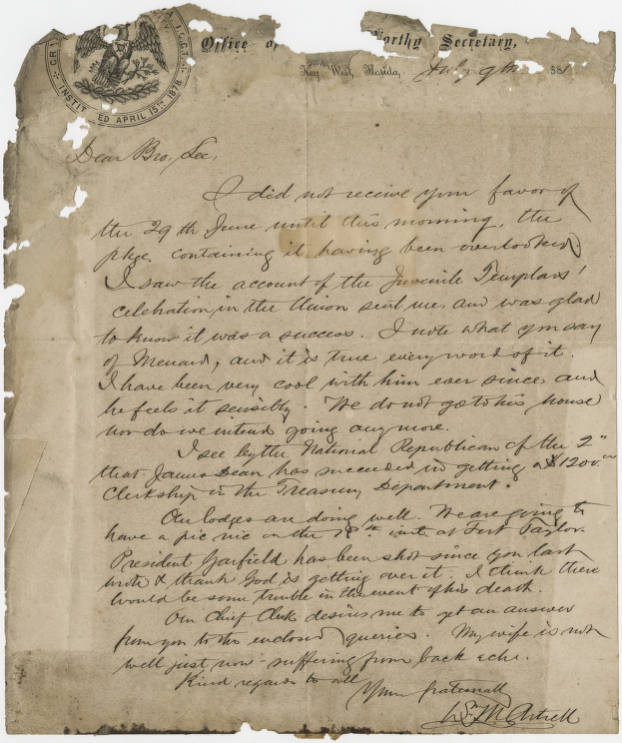 I.O.G.T.
INSTIT ED APRIL 15TH 1878
Office of orthy Secretary,
Key West, Florida, July 9th 1881
Dear Bro. Lee,
I did not receive your favor of
the 29th June until this morning, the
pkge. containing it having been overlooked.
I saw the account of the Juvenile Templars'
celebration in the Union sent me, and was glad
to know it was a success. I note what you say
of Menard, and it is true every word of it.
I have been very cool with him ever since, and
he feels it sensibly. We do not go to his house
nor do we intend going any more.
I see by the National Republican of the 2"
that James Dean has succeeded in getting a $1200.
Clerkship in the Treasury Department.
Our lodges are doing well. We are going to
have a pic nic on the inst. at Fort Taylor.
President Garfield has been shot since you last
wrote & thank God is getting over it. I think there
would be some trouble in the event of his death.
Our Chief Clerk desires me to get an answer
from you to the enclosed queries. My wife is not
well just now - suffering from back ache.
Kind regards to all
Yours fraternally
W. Artrell